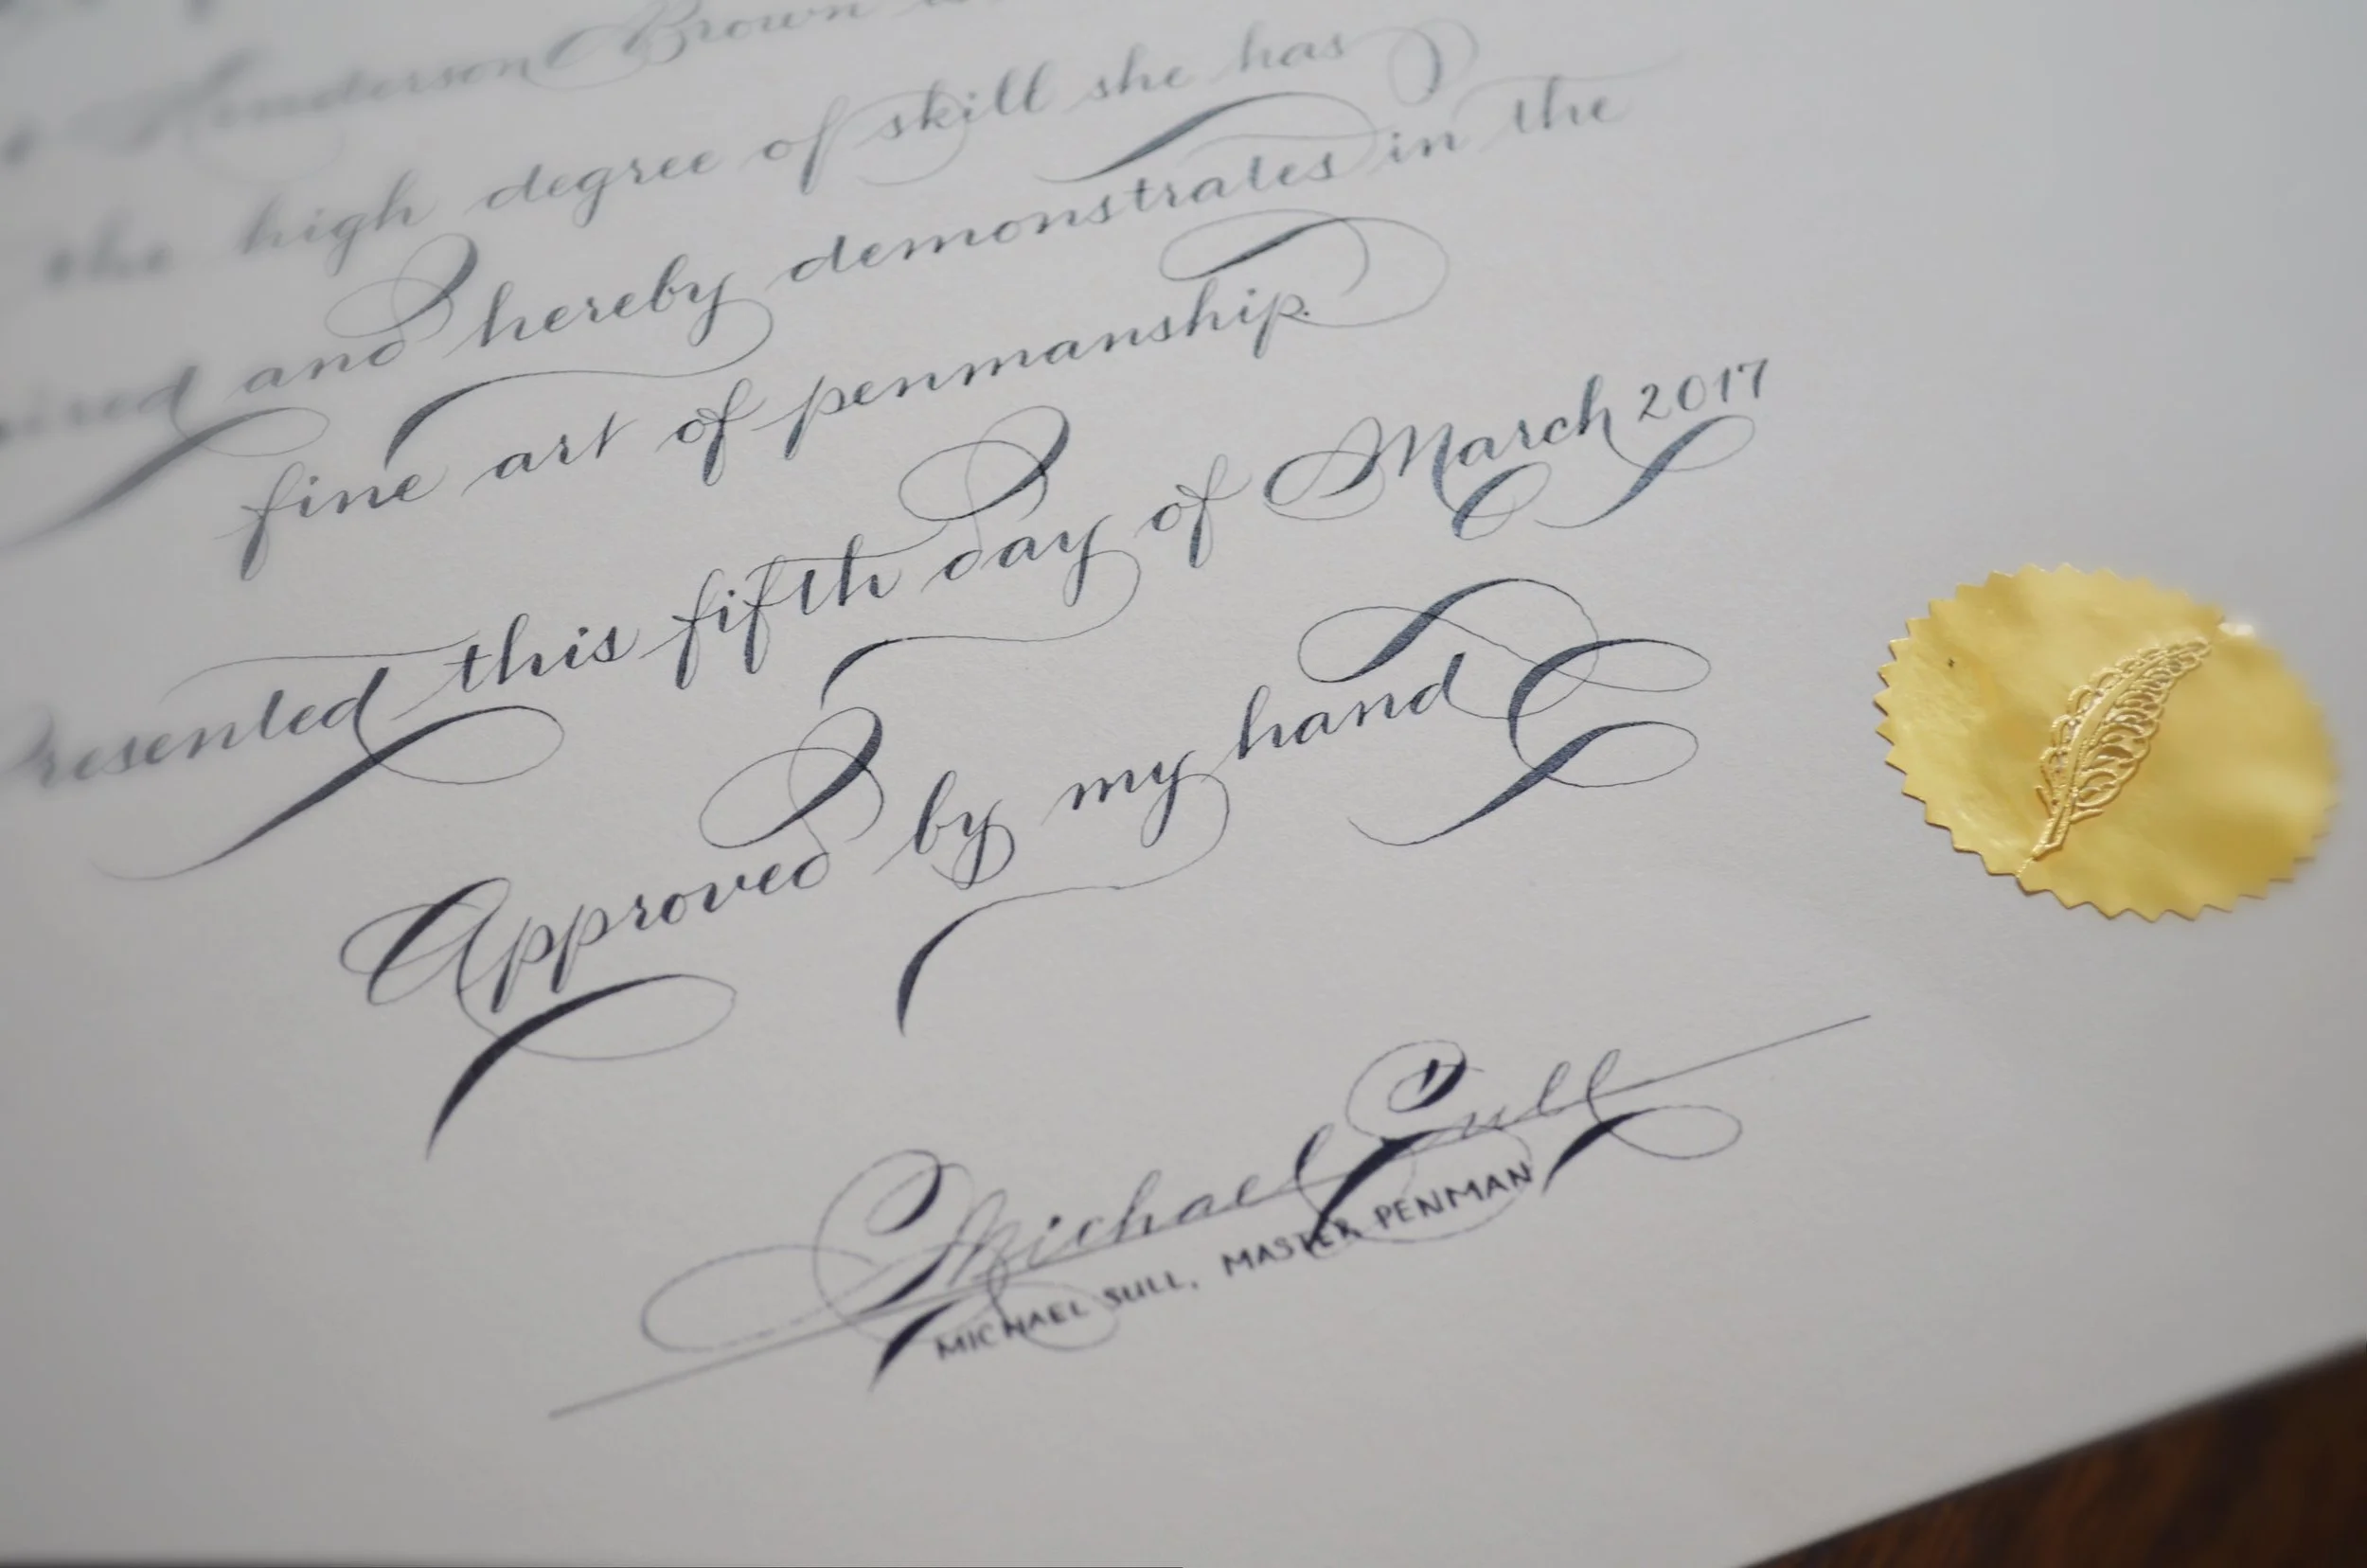 Henderson Brown
the high degree of skill she has
and hereby demonstrates in the
fine art of penmanship.
Presented this fifth day of March 2017
Approved by my hand
Michael Sull
MICHAEL SULL, MASTER PENMAN